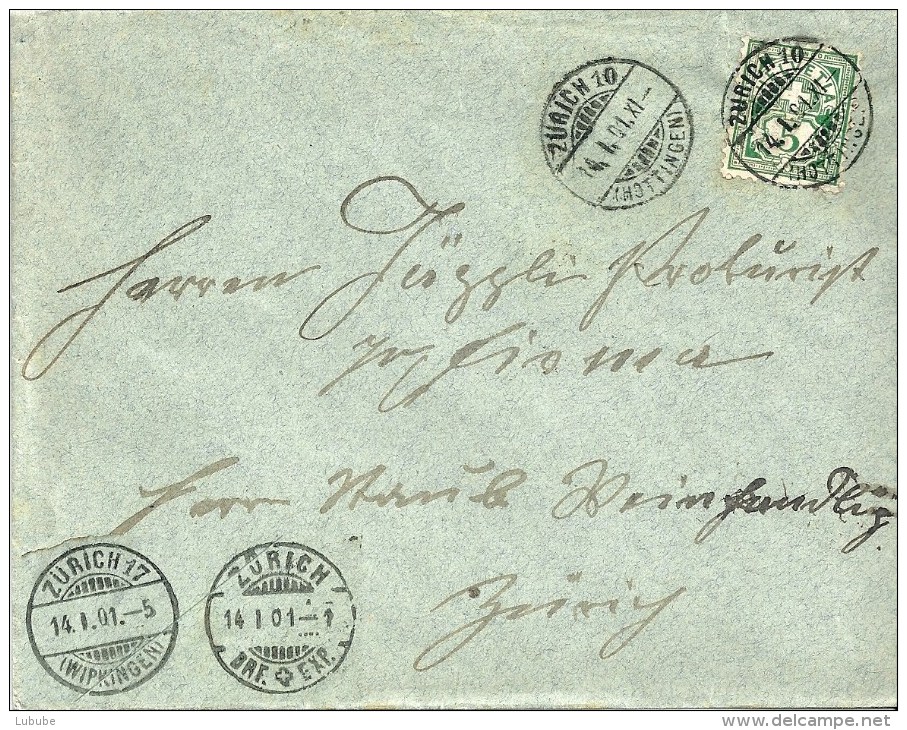 ZÜRICH 10
14.I.01.XI-
(HOTTINGEN)
ZÜRICH 10
14.I.01.XI-
(HOTTINGEN)
HELVETIA
5
Herren Jüppli Prokurist
p/ Firma
Herrn Staub Weinhandlg.
Zürich
ZÜRICH 17
14.I.01.-5
(WIPKINGEN)
ZÜRICH
14 I 01-1
BRF. EXP.
Lubube
delcampe.net